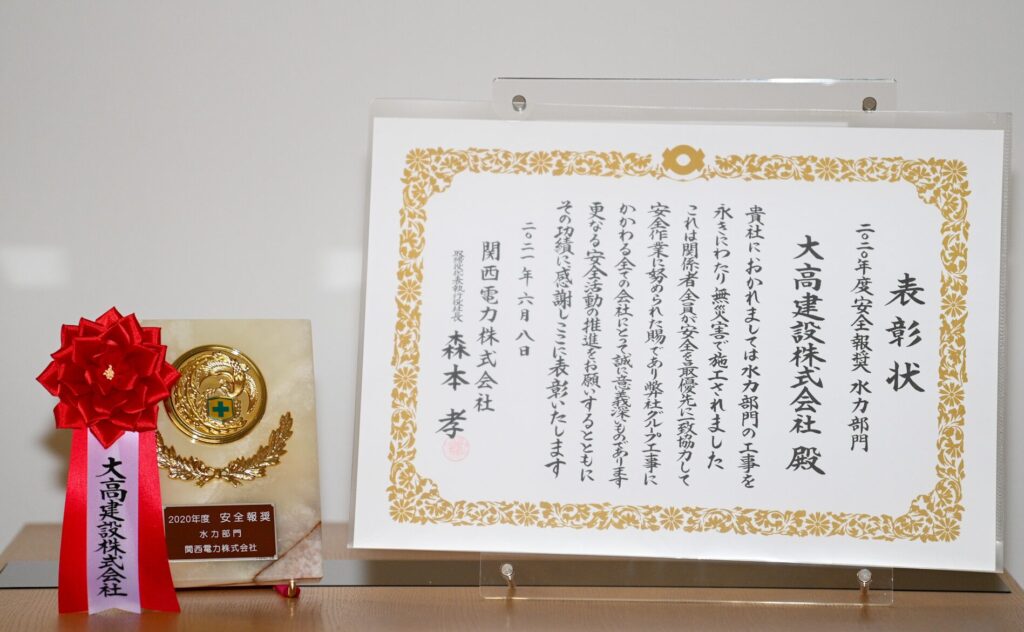 表彰状
二〇二〇年度 安全報奨 水力部門
大高建設株式会社 殿
貴社におかれましては水力部門の工事を
永きにわたり無災害で施工されました
これは関係者全員が安全を最優先に一致協力して
安全作業に努められた賜であり弊社グループ工事に
かかわる全ての会社にとって誠に意義深いものであります
更なる安全活動の推進をお願いするとともに
その功績に感謝しここに表彰いたします
二〇二一年六月八日
関西電力株式会社
取締役代表執行役社長 森本 孝
大高建設株式会社
2020年度 安全報奨
水力部門
関西電力株式会社